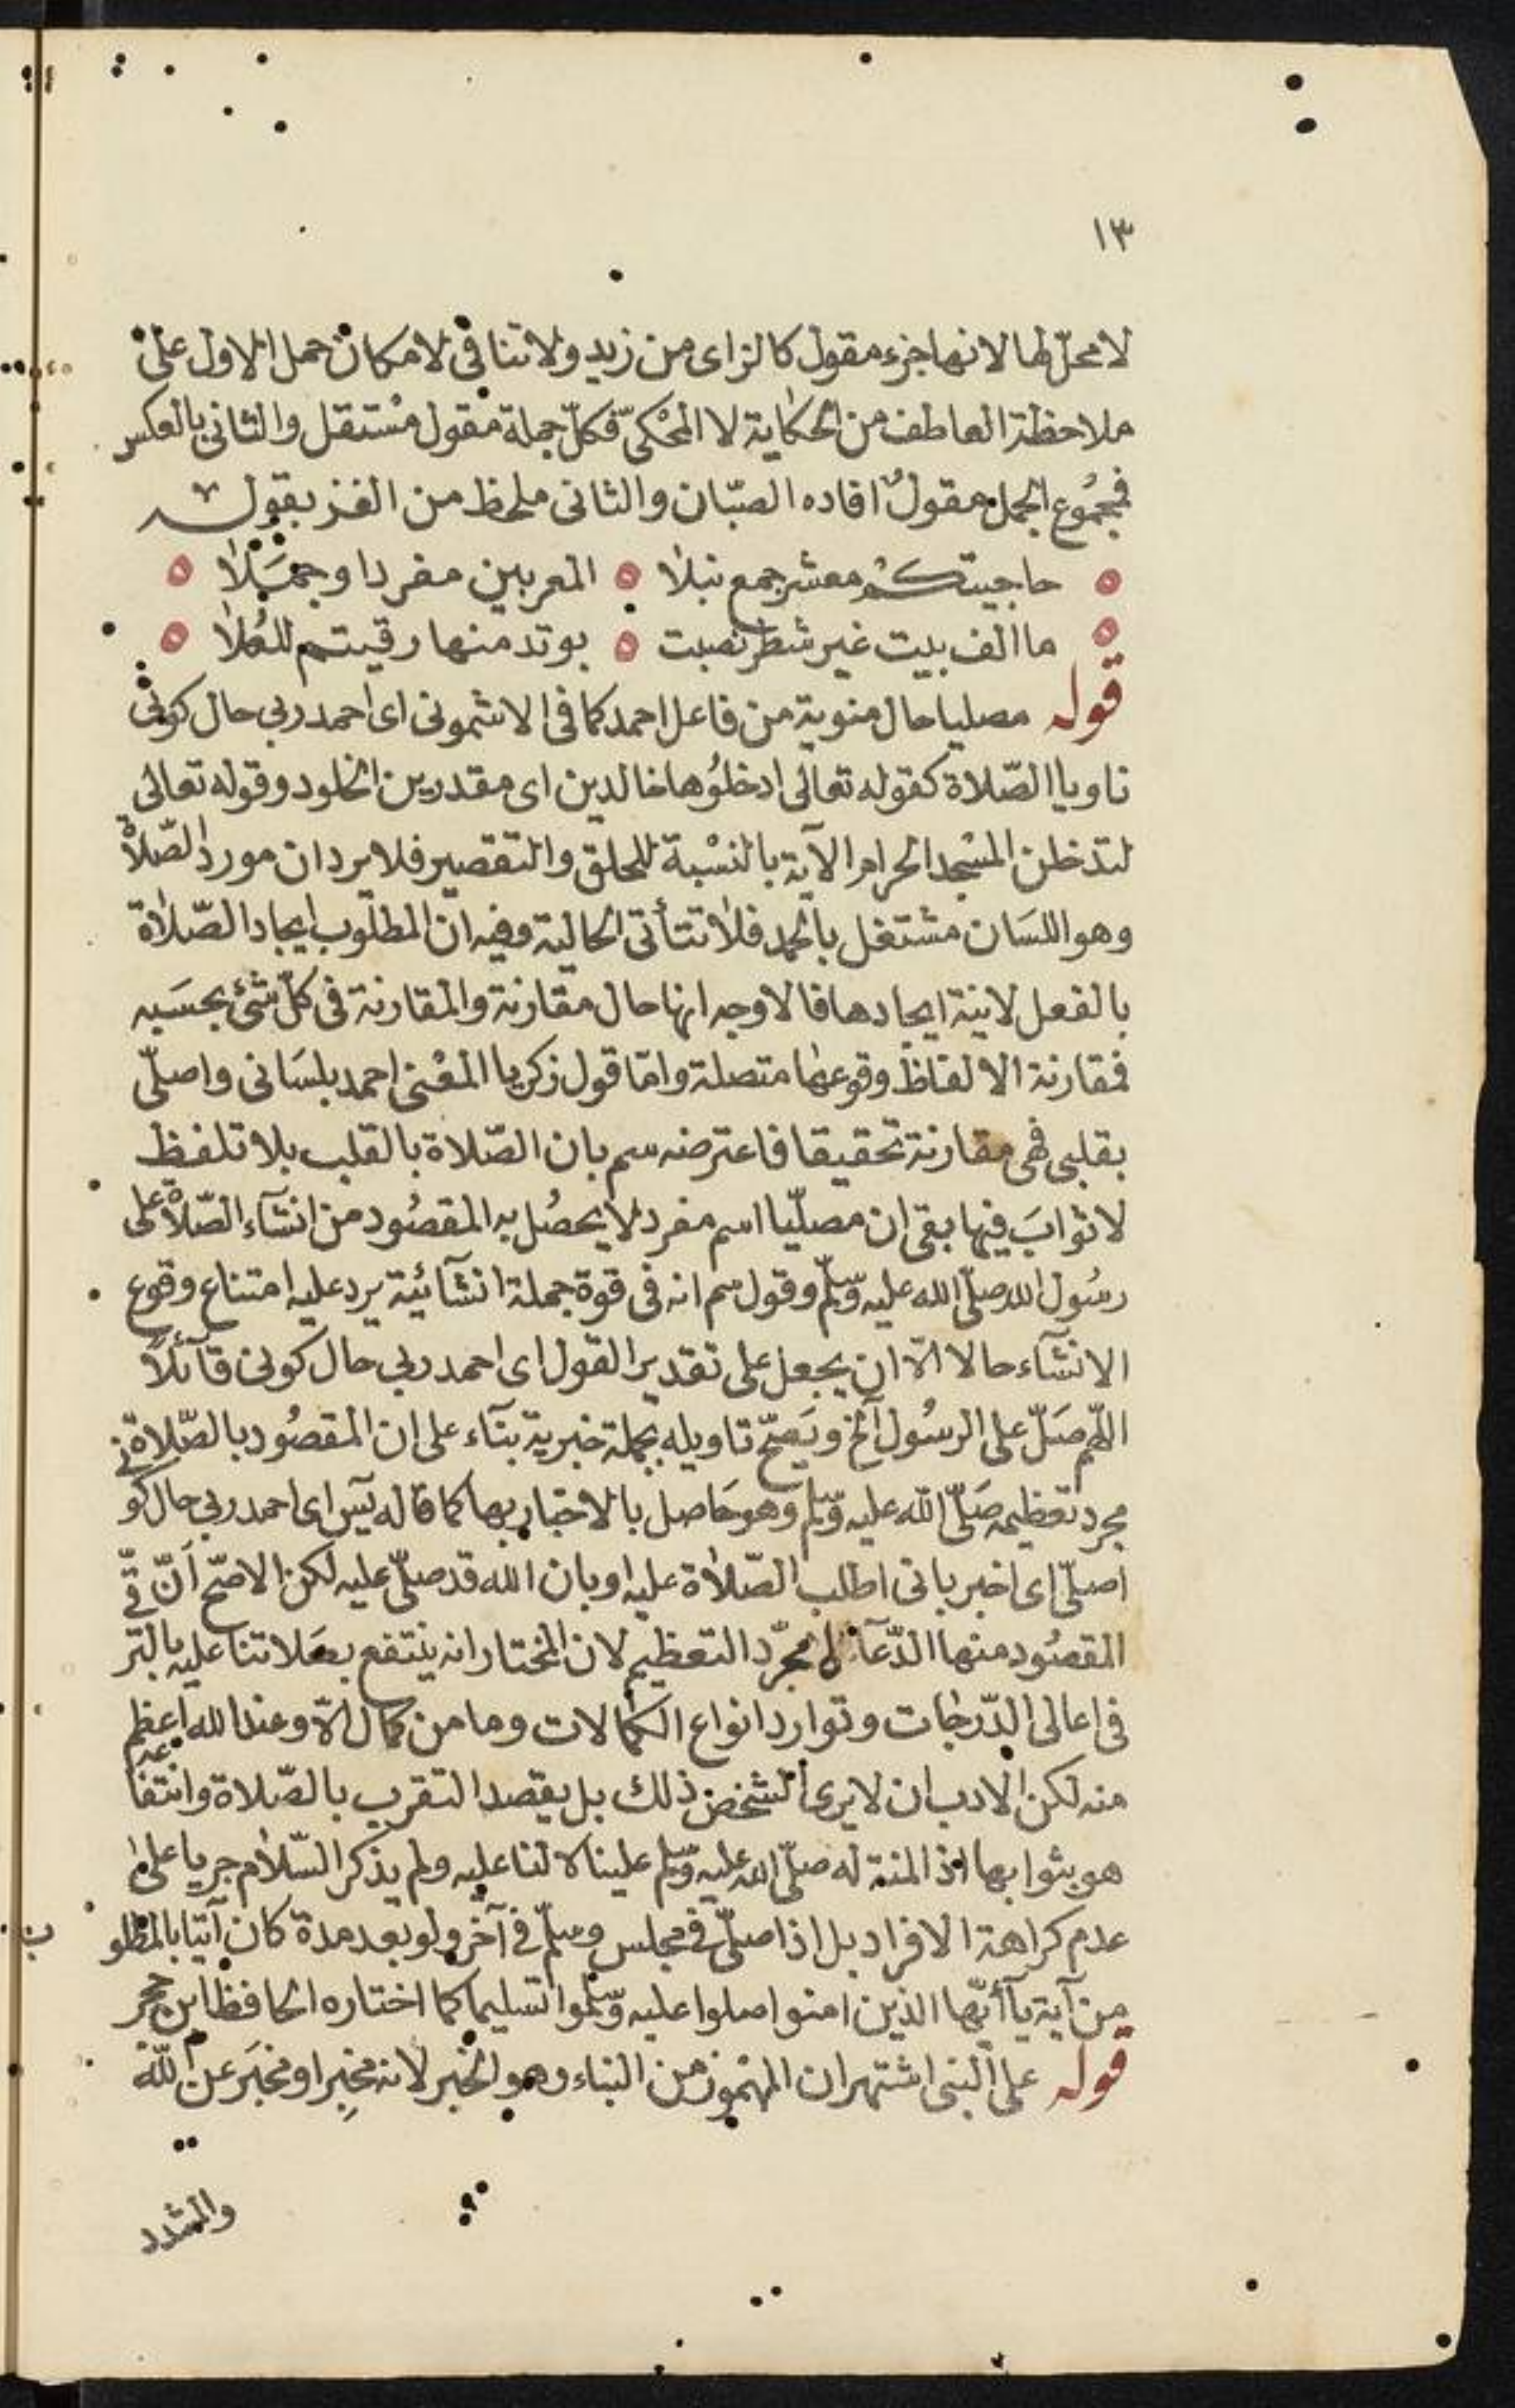 ١٣
لا محلّ لها لانها جزء مقول كالزاى من زيد ولا تنافى لامكان حمل الاول على
ملاحظة العاطف من الحكاية لا المحْكىّ فكلّ جملة مقول مسْتقل والثانى بالعكس
فمجمُوع الجمل مقولٌ افاده الصبّان والثانى ملحظ من الغز بقوله
حاجيتكمُ معشر جمع نبلا المعربين مفردا وجمَلا
ما الف بيت غير شطر نصبت بوتد منها رقيتم للعُلا
قوله مصليا حال منوية من فاعل احمد كما فى الاشمونى اى احمد ربي حال كونى
ناويا الصّلاة كقوله تعالى ادخلُوها خالدين اى مقدرين الخلود وقوله تعالى
لتدخلن المسْجد الحرام الآية بالنسْبة للحلق والتقصير فلا يرد ان مورد الصّلاة
وهو اللسَان مشتغل بالحمد فلا تتأتى الحالية وفيه ان المطلوب ايجاد الصّلاة
بالفعل لا نية ايجادها فالاوجه انها حال مقارنة والمقارنة فى كلّ شئ بحسَبه
فمقارنة الالفاظ وقوعها متصلة وامّا قول زكريا المعْنى احمد بلسَانى واصلّى
بقلبى فهى مقارنة تحقيقا فاعترضه سم بان الصّلاة بالقلب بلا تلفظ
لا ثوابَ فيها بقى ان مصلّيا اسم مفرد لا يحصُل به المقصُود من انشآء الصّلاة على
رسُول الله صلّى الله عليه وسّلم وقول سم انه فى قوة جملة انشآئية يرد عليه امتناع وقوع
الانشآء حالا الّا ان يجعل على تقدير القول اى احمد ربي حال كونى قآئلاً
اللّهم صَلّ على الرسُول الخ ويَصحّ تاويله بجملة خبرية بنآء على ان المقصُود بالصّلاة
مجرد تعظيمه صَلّى الله عليه وسّلم وهو حَاصل بالاخبار بها كما قاله يس اى احمد ربي حال كونى
اصلّى اى اخبر بانى اطلب الصّلاة عليه او بان الله قد صلّى عليه لكن الاصّح اَنّ
المقصُود منها الدّعآء لا مجرّد التعظيم لان المختار انه ينتفع بصَلاتنا عليه بالترقّى
فى اعالى الدّرجات وتوارد انواع الكمالات وما من كمال الّا وعند الله اعظم
منه لكن الادب ان لا يرى الشخص ذلك بل يقصد التقرب بالصّلاة وانتفاعه
هو بثوابها اذ المنة له صلّى الله عليه وسّلم علينا لا لنا عليه ولم يذكر السّلام جريا على
عدم كراهة الافراد بل اذا صلّى فى مجلس وسلّم فى آخر ولو بعد مدة كان آتيا بالمطلوب
من آية يآ أيّها الذين امنوا صلوا عليه وسّلموا تسليما كما اختاره الحافظ ابن حجر
قوله على النبى اشتهر ان المهْموز من النباء وهو الخبر لانه مخبِر او مخبَر عن الله
والمشدد